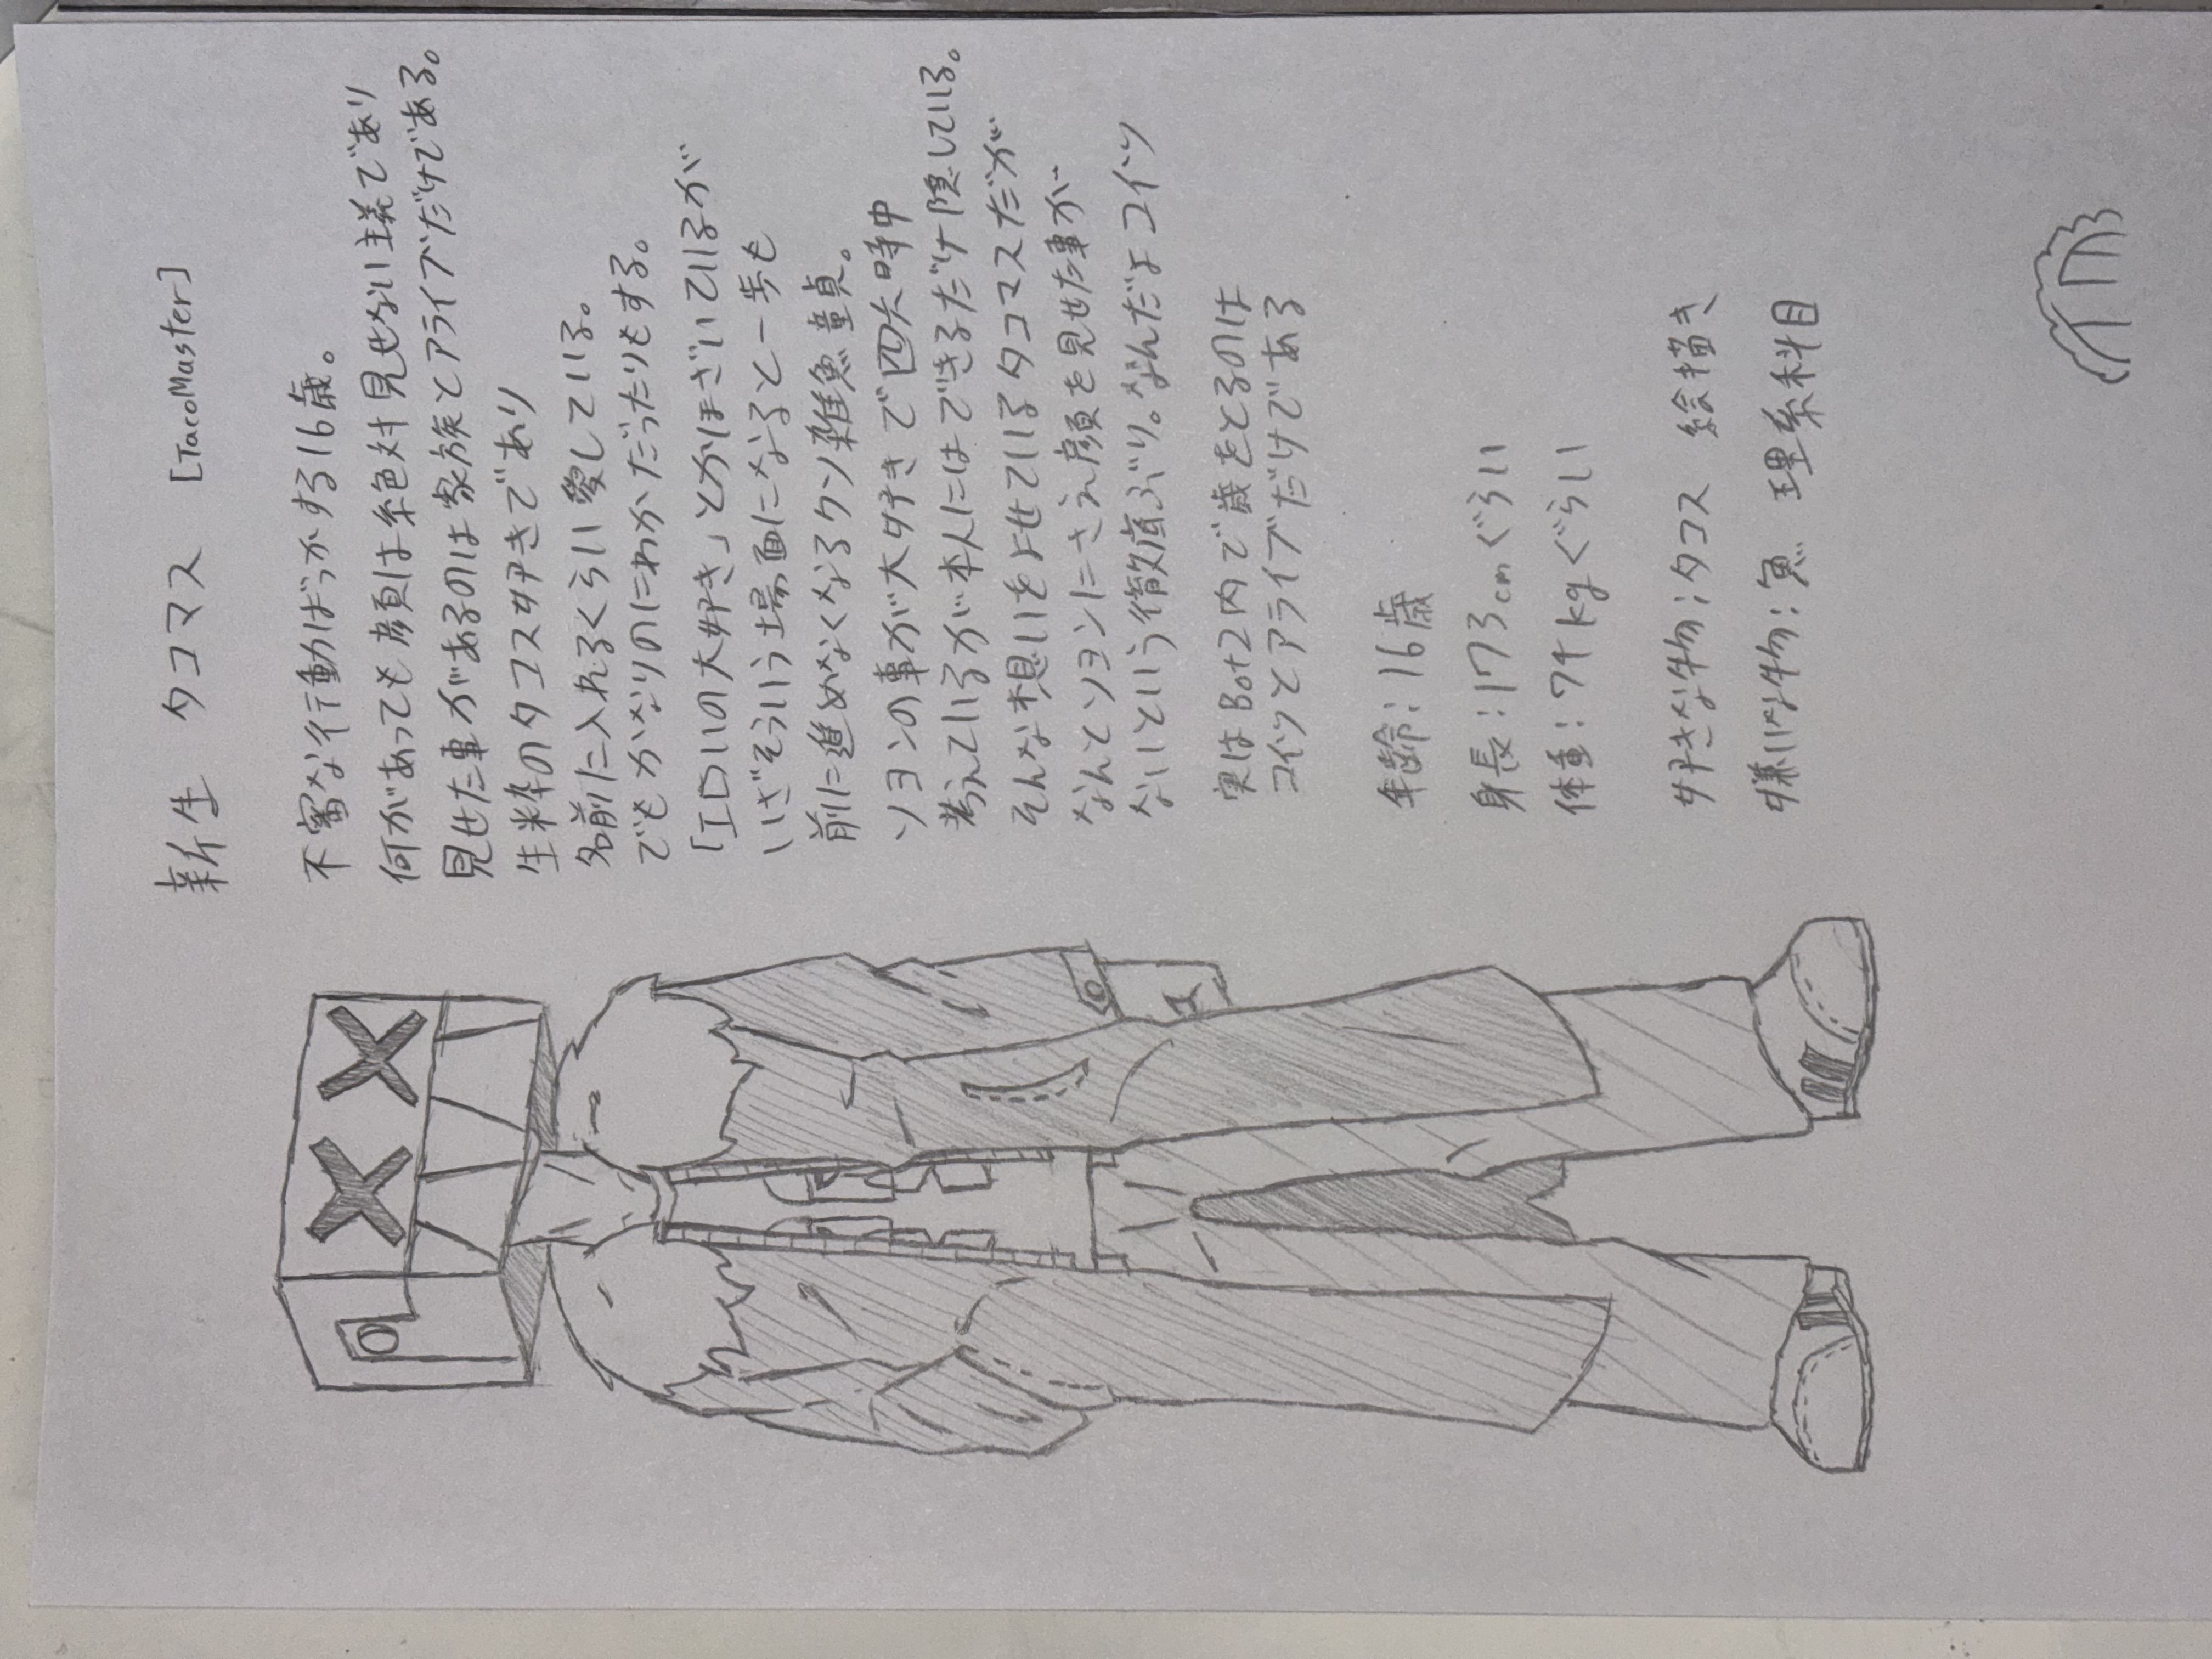 新生 タコマス [TacoMaster]
不審な行動ばっかする16歳。
何があっても顔は絶対見せない主義であり
見せた事があるのは家族とアライブだけである。
生粋のタコス好きであり
名前に入れるくらい愛している。
でもかなりのにわかだったりもする。
「エロいの大好き」とかほざいているが
いざそういう場面になると一歩も
前に進めなくなるクソ雑魚童貞。
ソヨンの事が大好きで四六時中
考えているが本人にはできるだけ隠している。
そんな想いをよせているタコマスだが
なんとソヨンにさえ顔を見せた事が
ないという徹底ぶり。なんだよコイツ
実はBot2内で歳をとるのは
コイツとアライブだけである
年齢:16歳
身長:173cmぐらい
体重:74kgぐらい
好きな物:タコス 絵描き
嫌いな物:魚 理系科目